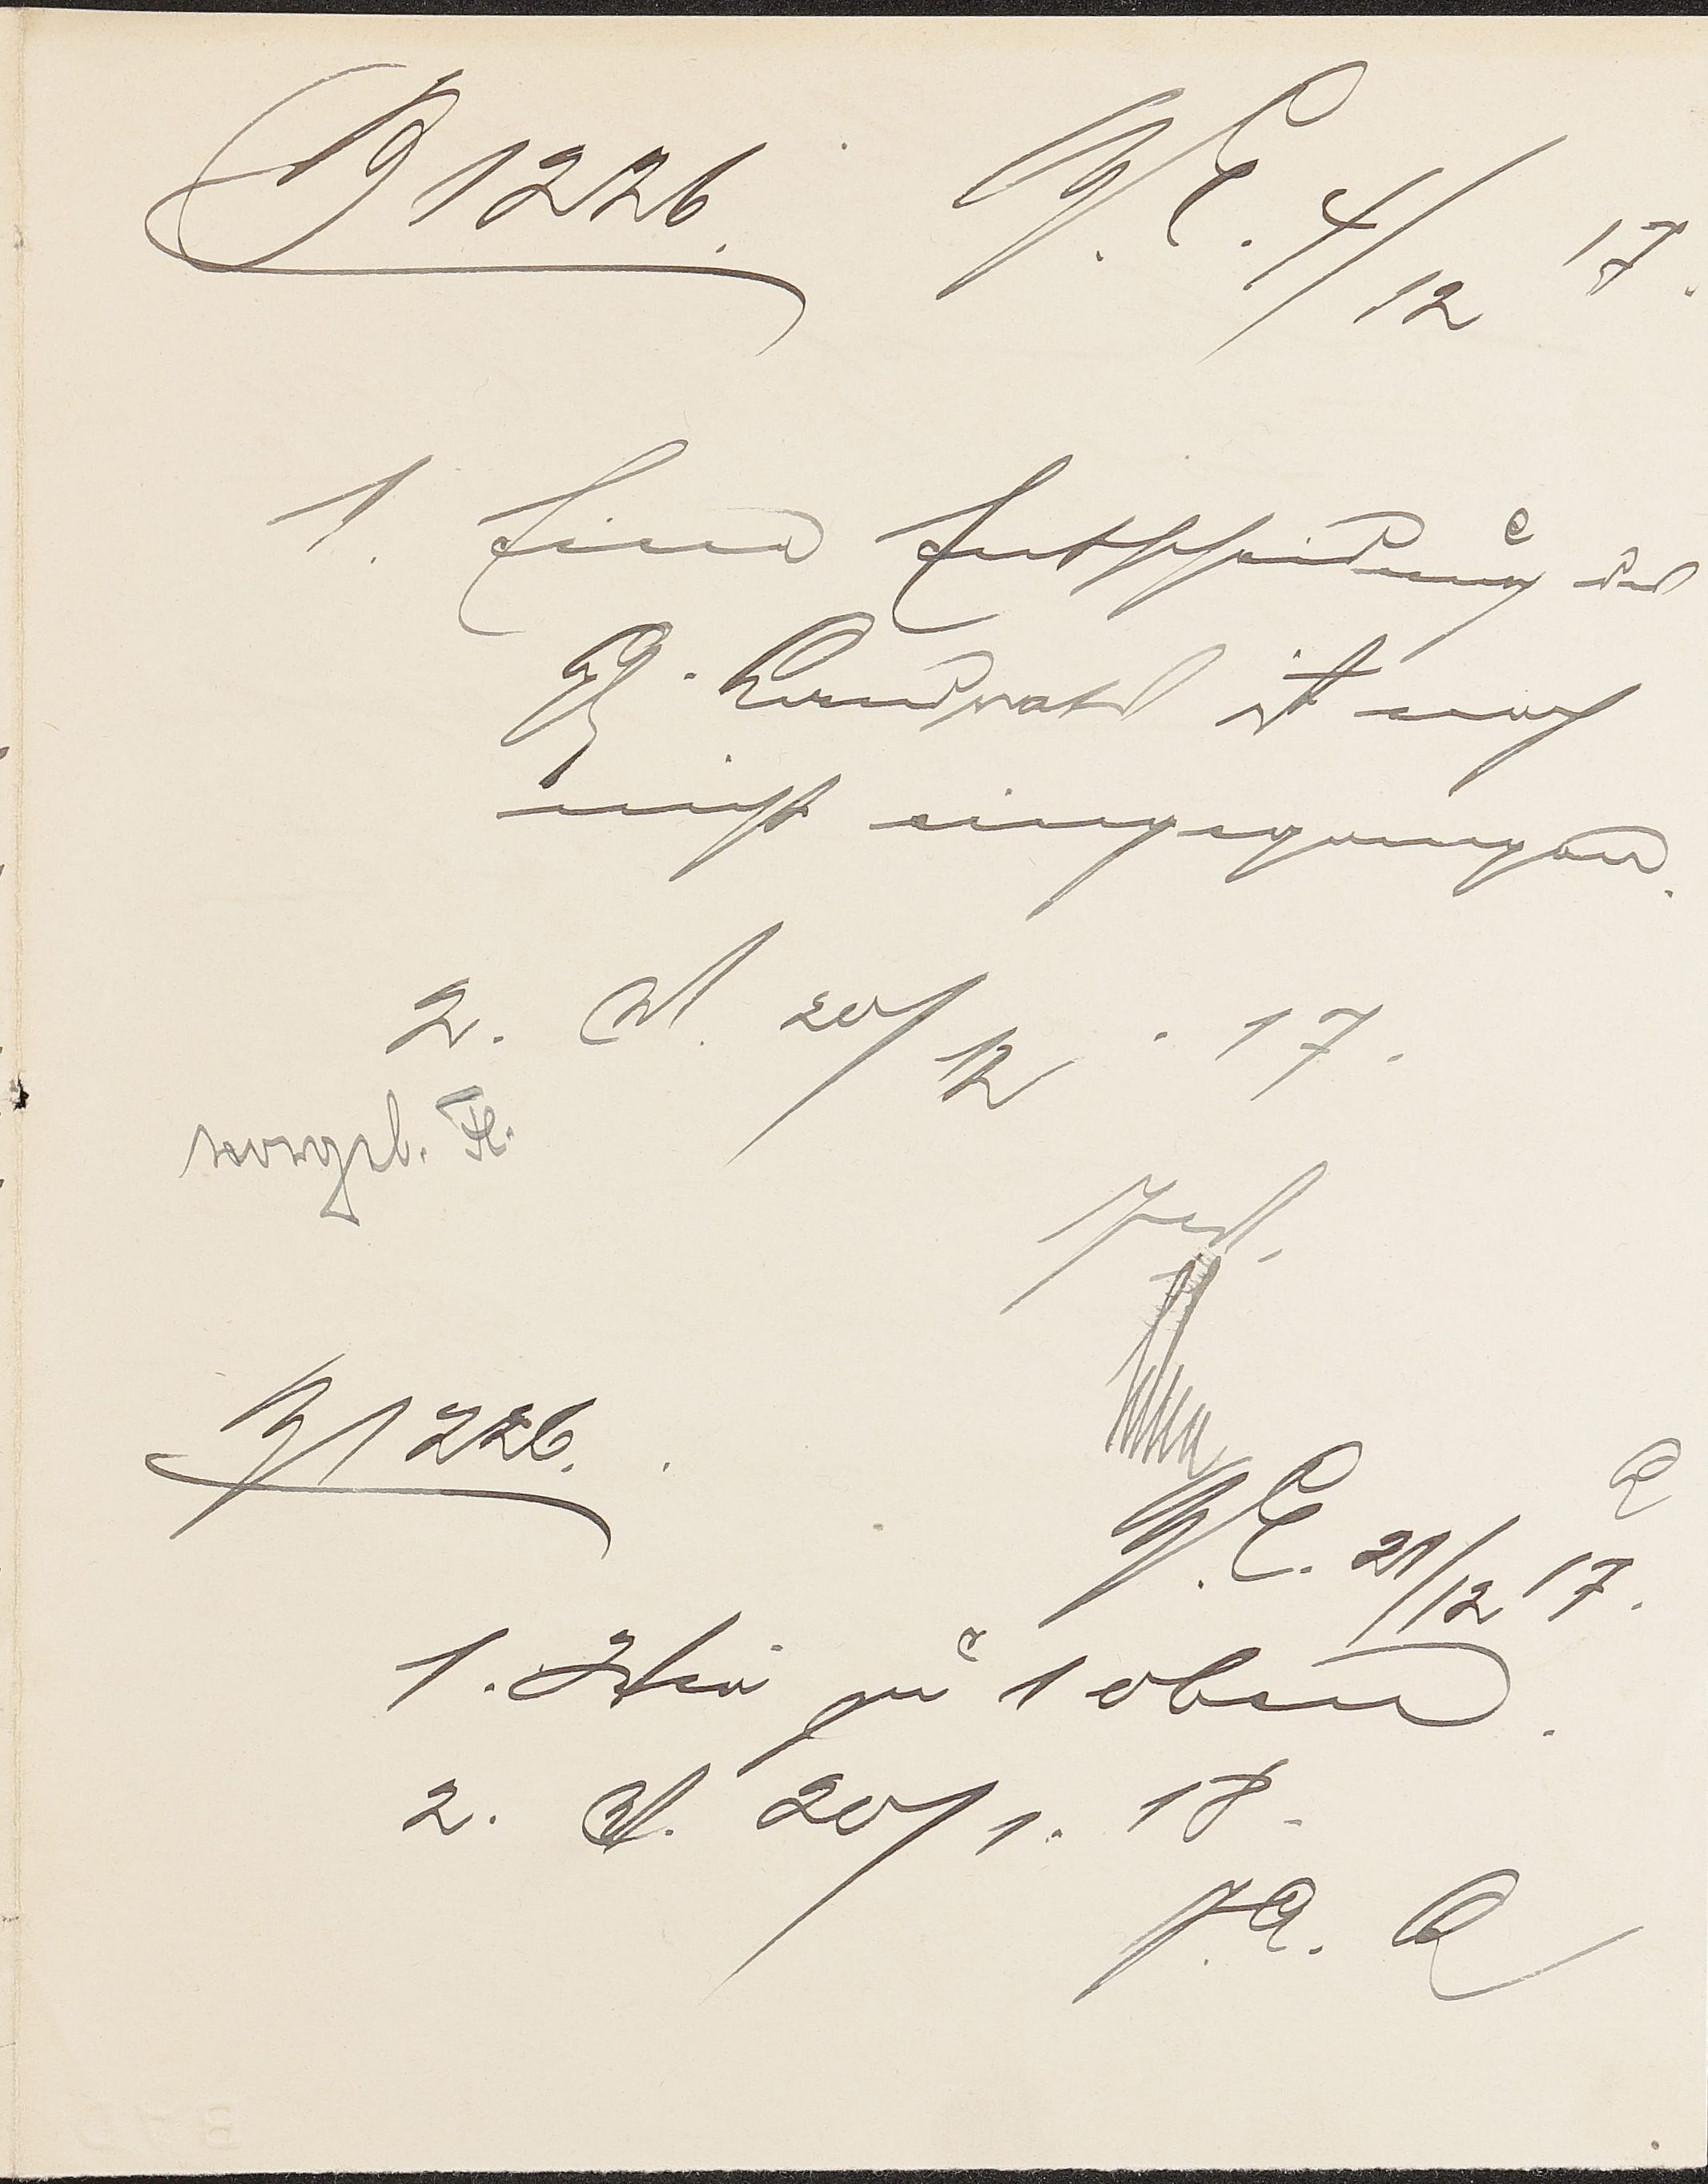 J 1226. G. E. 4/12 17.
1. Eine Entscheidung des
Kgl. Landrats ist noch
nicht eingegangen.
2. W. 20/12. 17.
vorgel.
J 1226.
G. E. 21/12 17.
1. Wie zu 1 oben.
2. W. 20/1. 18.
J. A.